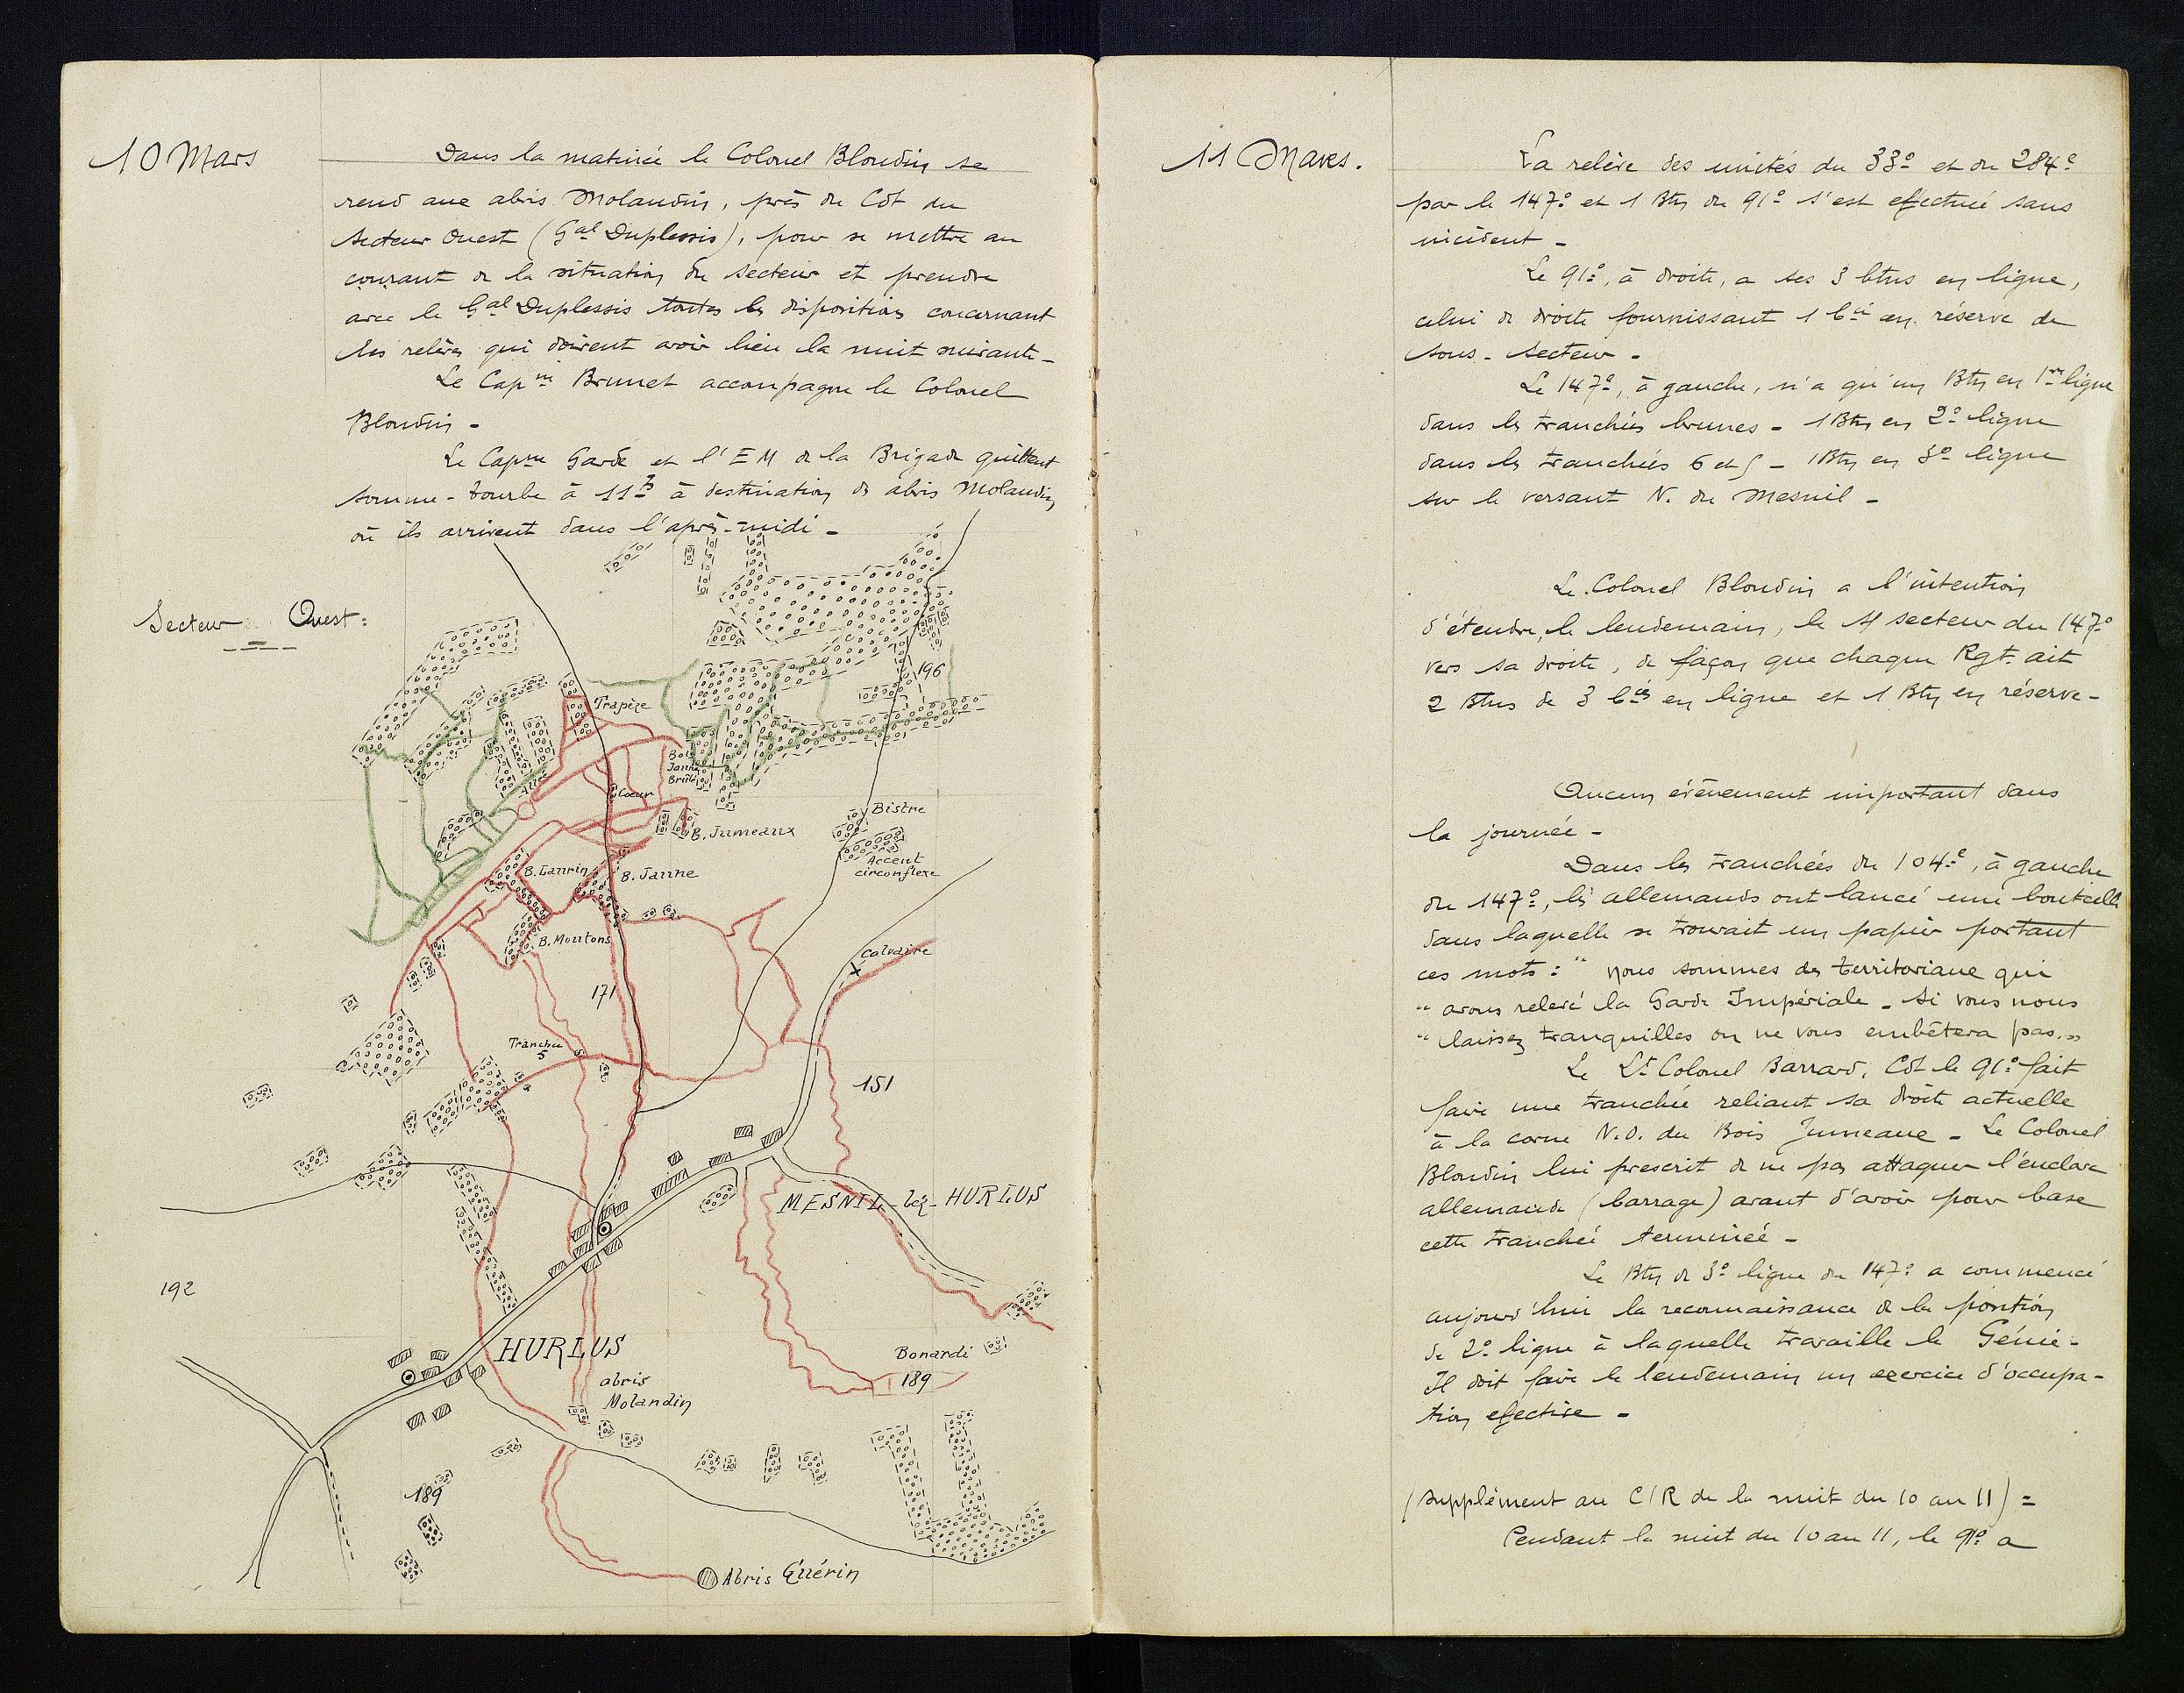 10 Mars
Dans la matinée le Colonel Blondin se
rend aux abris Molandin, près du Cdt du
secteur Ouest (Gal Duplessis), pour se mettre au
courant de la situation du secteur et prendre
avec le Gal Duplessis toutes les dispositions concernant
les relèves qui doivent avoir lieu la nuit suivante -
Le Capne Brunet accompagne le Colonel
Blondin -
Le Capne Garde et l'EM de la Brigade quittent
Somme-Tourbe à 11h à destination des abris Molandin
où ils arrivent dans l'après-midi -
Secteur Ouest :
196
Trapèze
Bois
Jaune
Brûlé
Coeur
Bistre
B. Jumeaux
Accent
circonflexe
B. Laurin
B. Jaune
B. Moutons
Calvaire
171
Tranchée
5
151
MESNIL-lez-HURLUS
192
HURLUS
Bonardi
189
abris
Molandin
189
Abris Guérin
11 Mars.
La relève des unités du 33e et du 284e
par le 147e et 1 Btn du 91e s'est efectuée sans
incident -
Le 91e, à droite, a ses 3 btns en ligne,
celui de droite fournissant 1 Cie en réserve de
sous-secteur -
Le 147e, à gauche, n'a qu'un Btn en 1re ligne
dans les tranchées brunes - 1 Btn en 2e ligne
dans les tranchées 6 et 5 - 1 Btn en 3e ligne
sur le versant N. du Mesnil -
Le Colonel Blondin a l'intention
d'étendre, le lendemain, le secteur du 147e
vers sa droite, de façon que chaque Rgt. ait
2 Btns de 3 Cies en ligne et 1 Btn en réserve -
Aucun évènement important dans
la journée -
Dans les tranchées du 104e, à gauche
du 147e, les allemands ont lancé une bouteille
dans laquelle se trouvait un papier portant
ces mots : " nous sommes des territoriaux qui
" avons relevé la Garde Impériale - Si vous nous
" laissez tranquilles on ne vous embêtera pas. "
Le Lt Colonel Barrard, Cdt le 91e fait
faire une tranchée reliant sa droite actuelle
à la corne N.O. du Bois Jumeaux - Le Colonel
Blondin lui prescrit de ne pas attaquer l'enclave
allemande (barrage) avant d'avoir pour base
cette tranchée terminée -
Le Btn de 3e ligne du 147e a commencé
aujourd'hui la reconnaissance de la position
de 2e ligne à laquelle travaille le Génie -
Il doit faire le lendemain un exercice d'occupa-
tion efective -
(Supplément au C/R de la nuit du 10 au 11) =
Pendant la nuit du 10 au 11, le 91e a